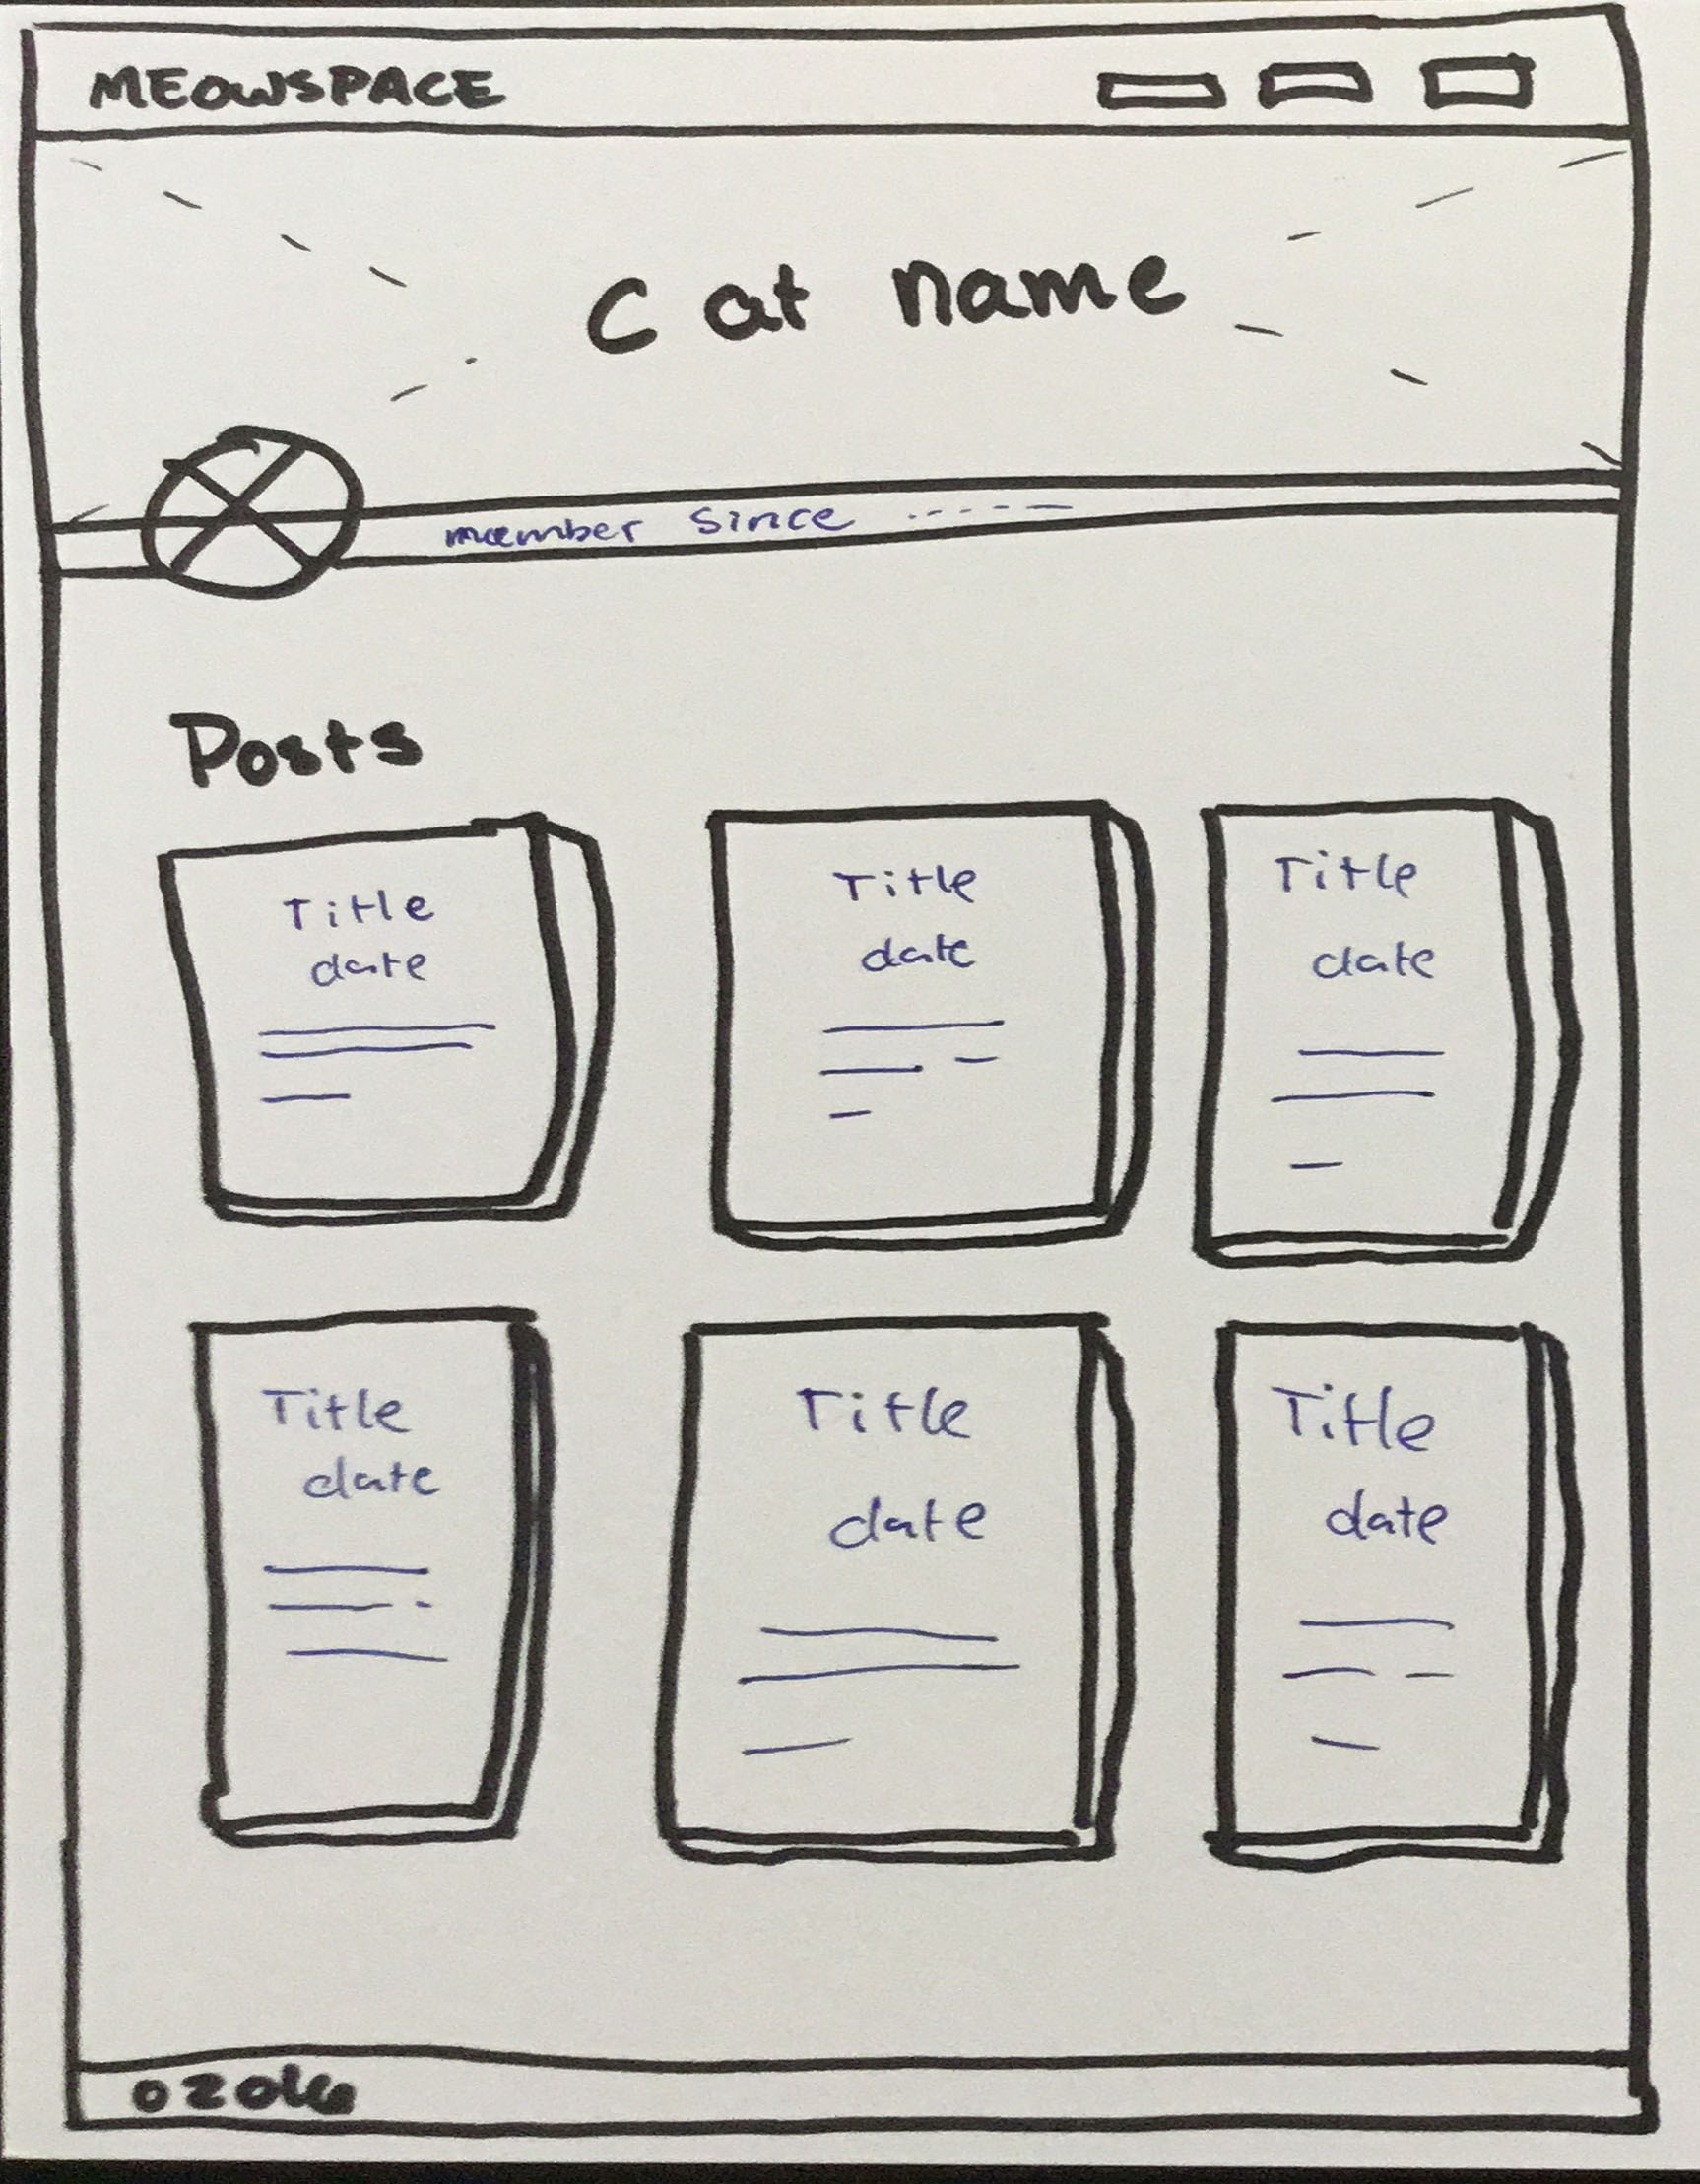 MEOWSPACE
Cat name
member since
Posts
Title
date
Title
date
Title
date
Title
date
Title
date
Title
date